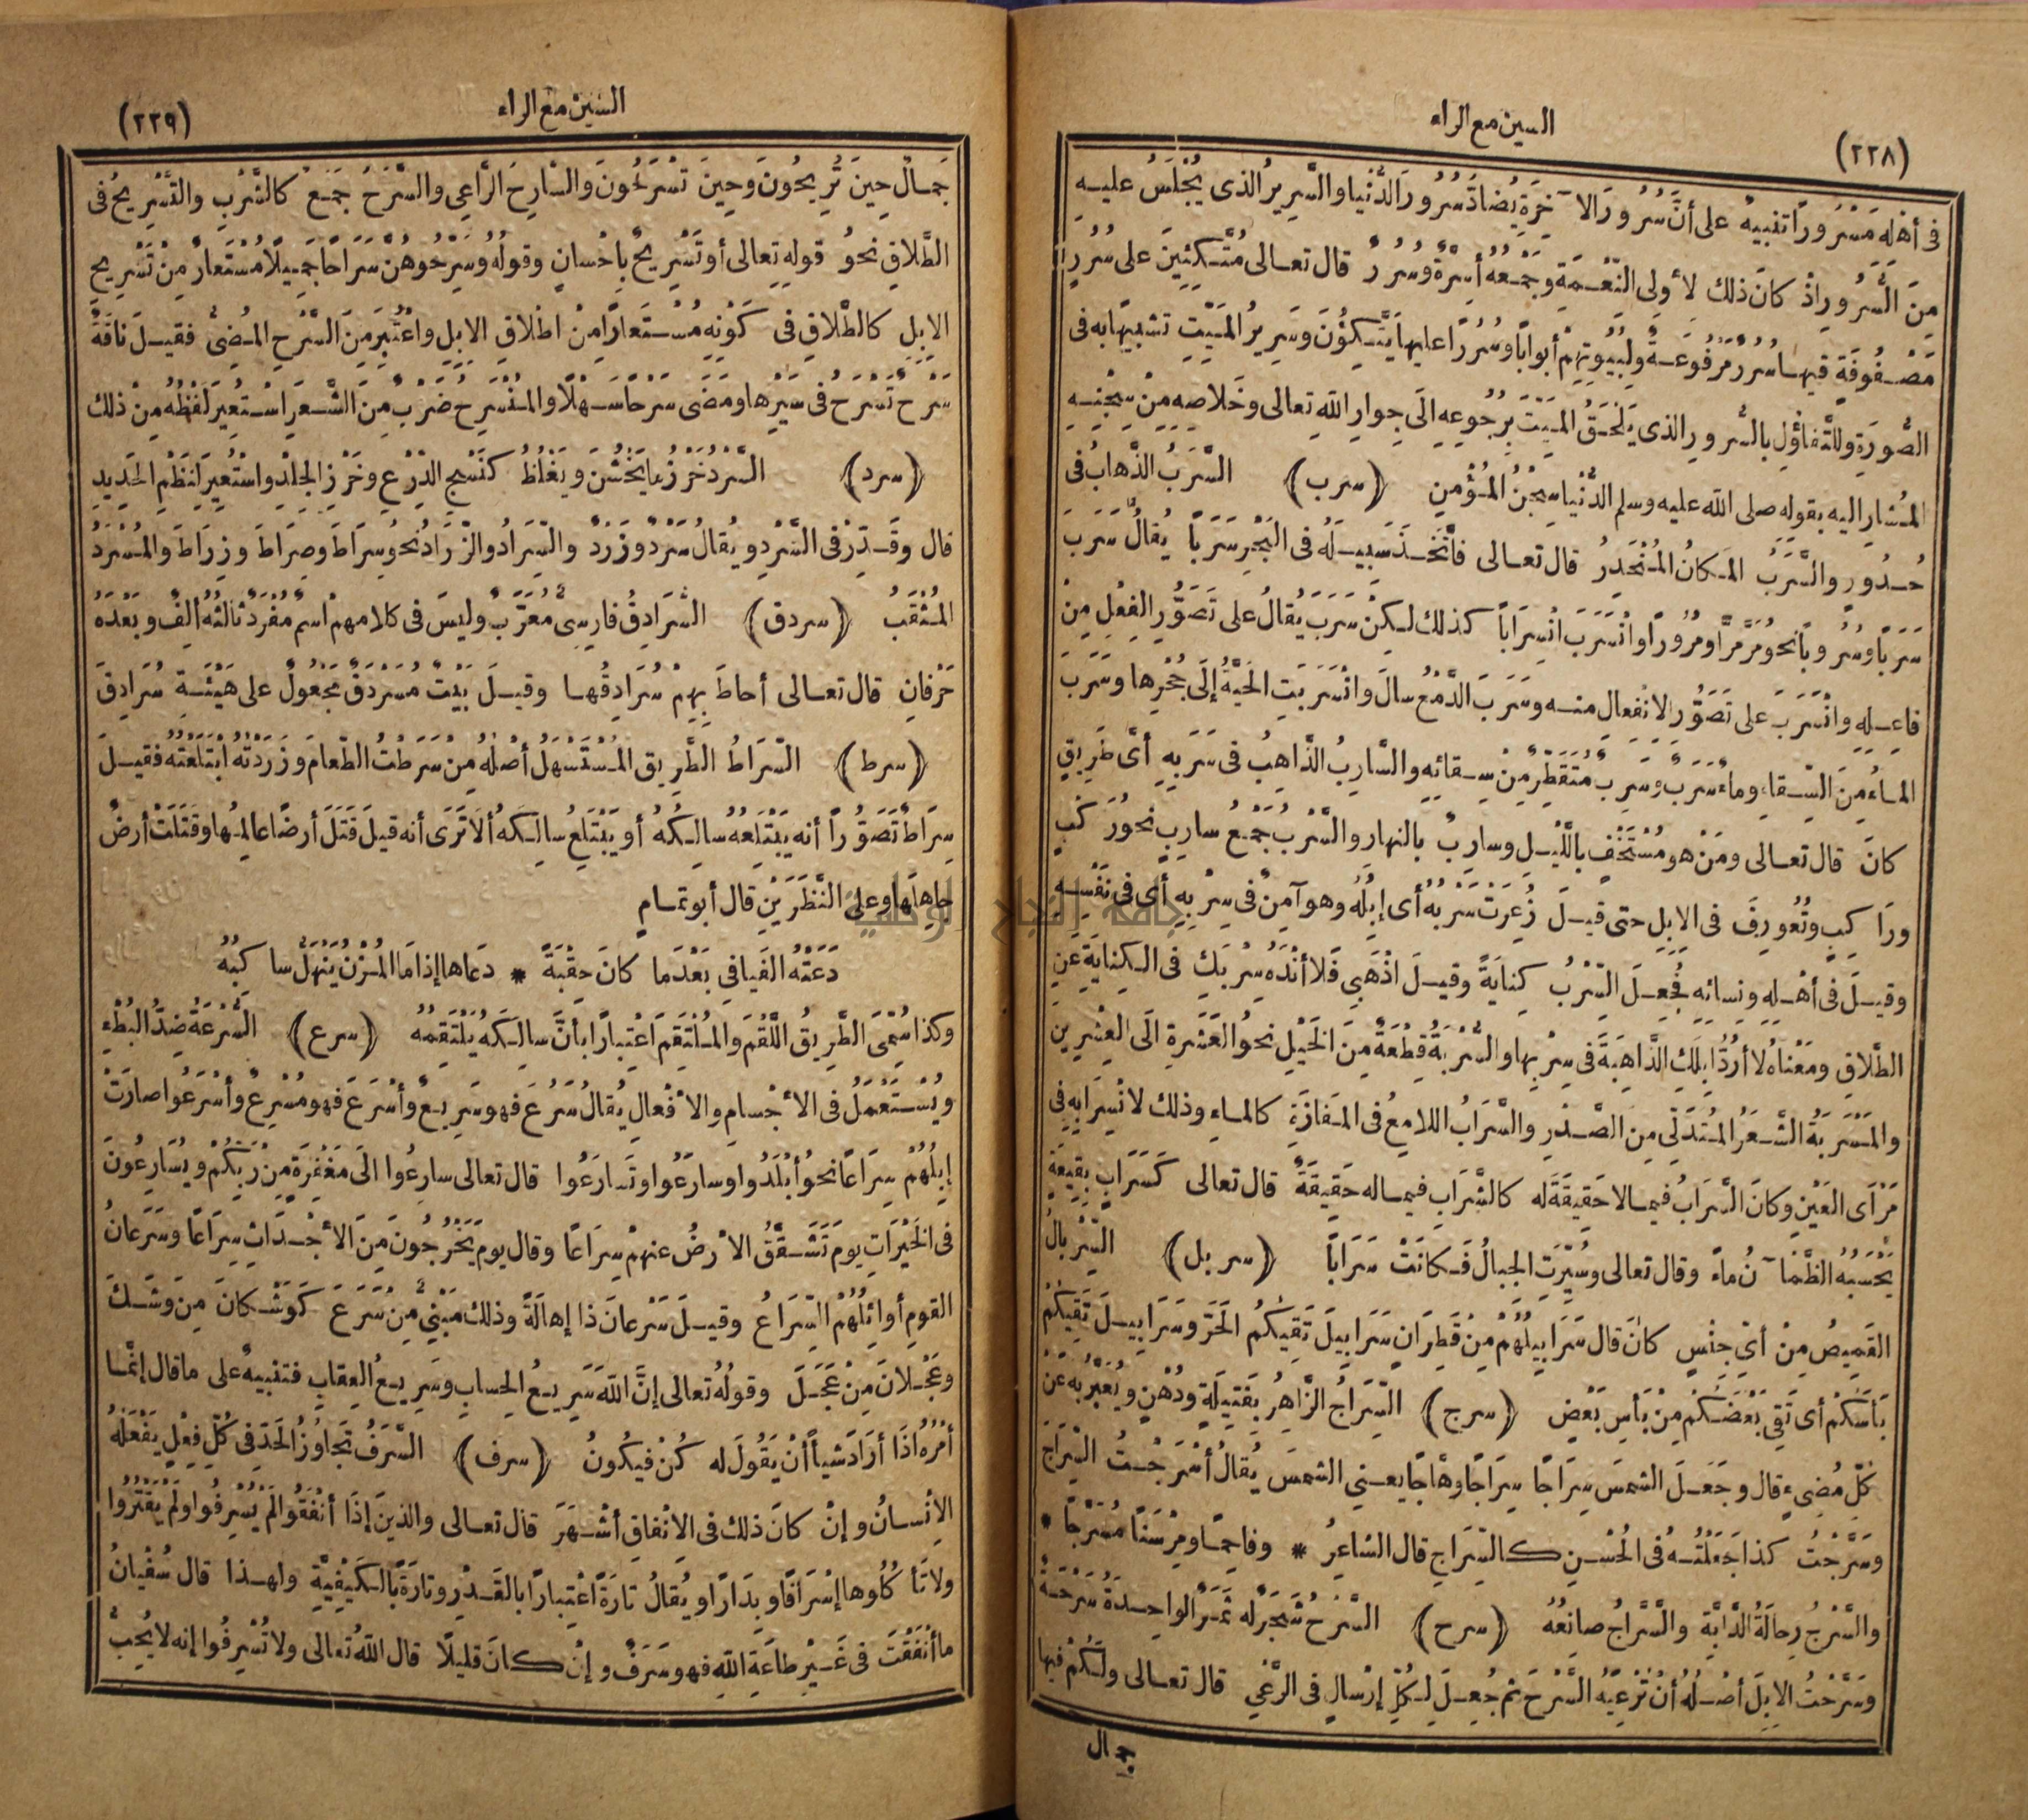 السين مع الراء
(٢٢٨)
فى أهْلِهِ مَسْرُورًا تنبيهٌ على أنَّ سُرُورَ الا ٓخِرَةِ يُضادُّ سُرُورَ الدُّنْيا والسَّرِيرُ الذى يُجْلَسُ عليهِ
مِنَ السُّرُورِ اذْ كانَ ذلك لأُولِى النِّعْمَةِ وجَمْعُهُ أسِرَّةٌ وسُرُرٌ قال تعالى مُتَّكِئِينَ على سُرُرٍ
مَصْفُوفَةٍ فيها سُرُرٌ مَرْفُوعَةٌ ولِبُيُوتِهِمْ أبوابًا وسُرُرًا عليها يَتَّكِؤُنَ وسَرِيرُ المَيِّتِ تشبيهًا به فى
الصُّورَةِ وللتَّفاؤُلِ بالسُّرورِ الذى يَلْحَقُ المَيِّتَ بِرُجُوعِهِ الَى جِوارِ اللهِ تعالى وخَلاصِهِ مِنْ سِجْنِهِ
المُشارِ اليه بقولِهِ صلى الله عليه وسلم الدُّنْيا سِجْنُ المُؤْمِنِ ﴿سرب﴾ السَّرَبُ الذَّهابُ فى
حُدُورٍ والسَّرَبُ المَكانُ المُنْحَدِرُ قال تعالى فاتَّخَذَ سَبِيلَهُ فى البَحْرِ سَرَبًا يُقالُ سَرَبَ
سَرَبًا وسُرُوبًا نحوُ مَرَّ مَرًّا ومُرُورًا وانْسَرَبَ انْسِرَابًا كذلك لكِنْ سَرَبَ يُقالُ على تَصَوُّرِ الفِعْلِ مِنْ
فاعِلِهِ وانْسَرَبَ على تَصَوُّرِ الانْفِعالِ منه وسَرَبَ الدَّمْعُ سالَ وانْسَرَبَتِ الحَيَّةُ إلَى جُحْرِها وسَرَبَ
الماءُ مِنَ السِّقاءِ وماءٌ سَرَبٌ وسَرِبٌ مُتَقَطِّرٌ مِنْ سِقائِهِ والسَّارِبُ الذَّاهِبُ فى سَرَبِهِ أىِّ طَرِيقٍ
كانَ قال تعالى ومَنْ هو مُسْتَخْفٍ باللَّيْلِ وسارِبٌ بالنهارِ والسَّرْبُ جَمْعُ سارِبٍ نحوُ رَكْبٍ
ورَاكِبٍ وتُعُورِفَ فى الابِلِ حتى قيلَ زُعِرَتْ سَرْبُهُ أى إبِلُهُ وهو آمِنٌ فى سِرْبِهِ أى فى نَفْسِهِ
وقيلَ فى أهْلِهِ ونِسائِهِ فَجُعِلَ السِّرْبُ كِنايَةً وقيلَ اذْهَبِى فَلا أنْدَهُ سِرْبَكِ فى الكِنايَةِ عَنِ
الطَّلاقِ ومَعْناهُ لا أرُدُّ إبِلَكِ الذَّاهِبَةَ فى سِرْبِها والسُّرْبَةُ قِطْعَةٌ مِنَ الخَيْلِ نحوُ العَشَرَةِ الَى العِشْرِينَ
والمَسْرَبَةُ الشَّعَرُ المُتَدَلِّى مِنَ الصَّدْرِ والسَّرَابُ اللامِعُ فى المَفازَةِ كالماءِ وذلك لانْسِرَابِهِ فى
مَرْأَى العَيْنِ وكانَ السَّرَابُ فيما لا حَقِيقَةَ له كالشَّرَابِ فيما له حَقِيقَةٌ قال تعالى كَسَرَابٍ بِقِيعَةٍ
يَحْسَبُهُ الظَّمْا ٓنُ ماءً وقال تعالى وسُيِّرَتِ الجِبالُ فَكانَتْ سَرَابًا ﴿سربل﴾ السِّرْبالُ
القَمِيصُ مِنْ أىِّ جِنْسٍ كانَ قال سَرَابِيلُهُمْ مِنْ قَطِرَانٍ سَرَابِيلَ تَقِيكُمُ الحَرَّ وسَرَابِيلَ تَقِيكُمْ
بَأسَكُمْ أى تَقِى بَعْضَكُمْ مِنْ بَأسِ بَعْضٍ ﴿سرج﴾ السِّرَاجُ الزَّاهِرُ بِفَتِيلَةٍ ودُهْنٍ ويُعَبَّرُ بهِ عَنْ
كُلِّ مُضِىءٍ قال وجَعَلَ الشمسَ سِرَاجًا سِرَاجًا وهَّاجًا يعنى الشمسَ يُقالُ أسْرَجْتُ السِّرَاجَ
وسَرَّجْتُ كذا جَعَلْتُهُ فى الحُسْنِ كالسِّرَاجِ قال الشاعِرُ * وفاحِمًا ومِرْسَنًا مُسَرَّجًا *
والسَّرْجُ رِحالَةُ الدَّابَّةِ والسَّرَّاجُ صانِعُهُ ﴿سرح﴾ السَّرْحُ شَجَرٌ له ثَمَرٌ الواحِدَةُ سَرْحَةٌ
وسَرَّحْتُ الابِلَ أصْلُهُ أنْ تُرْعِيَهُ السَّرْحَ ثم جُعِلَ لِكُلِّ إرْسالٍ فى الرَّعْىِ قال تعالى ولَكُمْ فيها
جمال
السين مع الراء
(٢٢٩)
جَمالٌ حِينَ تُرِيحُونَ وحِينَ تَسْرَحُونَ والسَّارِحُ الرَّاعِى والسَّرْحُ جَمْعٌ كالشَّرْبِ والتَّسْرِيحُ فى
الطَّلاقِ نحوُ قولِهِ تعالى أو تَسْرِيحٌ بِاِحْسانٍ وقولُهُ وسَرِّحُوهُنَّ سَرَاحًا جَمِيلًا مُسْتَعارٌ مِنْ تَسْرِيحِ
الابِلِ كالطَّلاقِ فى كَوْنِهِ مُسْتَعارًا مِنْ اطْلاقِ الابِلِ واعْتُبِرَ مِنَ السَّرْحِ المُضِىُّ فقيلَ ناقَةٌ
سَرْحٌ تَسْرَحُ فى سَيْرِها ومَضَى سَرْحًا سَهْلًا والمُنْسَرِحُ ضَرْبٌ مِنَ الشَّعَرِ اسْتُعِيرَ لَفْظُهُ مِنْ ذلك
﴿سرد﴾ السَّرْدُ خَرْزُ ما يَخْشُنُ ويَغْلُظُ كنَسْجِ الدِّرْعِ وخَرْزِ الجِلْدِ واسْتُعِيرَ لِنَظْمِ الحَدِيدِ
قال وقَدِّرْ فى السَّرْدِ ويُقالُ سَرْدٌ وزَرْدٌ والسِّرَادُ والزِّرَادُ نحوُ سِرَاطٍ وصِرَاطٍ وزِرَاطٍ والمُسْرَدُ
المُثْقَبُ ﴿سردق﴾ السُّرَادِقُ فارِسِىٌّ مُعَرَّبٌ وليسَ فى كلامِهِمْ اسْمٌ مُفْرَدٌ ثالثُهُ ألِفٌ وبَعْدَهُ
حَرْفانِ قال تعالى أحاطَ بِهِمْ سُرَادِقُها وقيلَ بَيْتٌ مُسَرْدَقٌ مَجْعُولٌ على هَيْئَةِ سُرَادِقٍ
﴿سرط﴾ السِّرَاطُ الطَّرِيقُ المُسْتَسْهَلُ أصْلُهُ مِنْ سَرَطْتُ الطَّعامَ وزَرَدْتُهُ ابْتَلَعْتُهُ فقيلَ
سِرَاطٌ تَصَوُّرًا أنه يَبْتَلِعُهُ سالِكُهُ أو يَبْتَلِعُ سالِكَهُ ألَا تَرَى أنه قيلَ قَتَلَ أرضًا عالِمُها وقَتَلَتْ أرضٌ
جاهِلَها وعلى النَّظَرَيْنِ قال أبو تمام
دَعَتْهُ الفَيافِى بَعْدَما كانَ حِقْبَةً * دعاها إذا ما المُزْنُ يَنْهَلُّ ساكِبُهُ
وكذا سُمِّىَ الطَّرِيقُ اللَّقَمَ والمُلْتَقَمَ اعْتِبارًا بأنَّ سالِكَهُ يَلْتَقِمُهُ ﴿سرع﴾ السُّرْعَةُ ضِدُّ البُطْءِ
ويُسْتَعْمَلُ فى الاجْسامِ والافْعالِ يُقالُ سَرُعَ فهو سَرِيعٌ وأسْرَعَ فهو مُسْرِعٌ وأسْرَعُوا صارَتْ
إبِلُهُمْ سِرَاعًا نحوُ أبْلَدُوا وسارَعُوا وتَسارَعُوا قال تعالى سارِعُوا الَى مَغْفِرَةٍ مِنْ رَبِّكُمْ ويُسارِعُونَ
فى الخَيْرَاتِ يومَ تَشَقَّقُ الارْضُ عنهمْ سِرَاعًا وقال يومَ يَخْرُجُونَ مِنَ الاجْدَاثِ سِرَاعًا وسَرَعانُ
القومِ أوائِلُهُمُ السِّرَاعُ وقيلَ سَرْعانَ ذا إهالَةً وذلك مَبْنِىٌّ مِنْ سَرَعَ كَوَشْكانَ مِنْ وَشَكَ
وعَجْلانَ مِنْ عَجَلَ وقولُهُ تعالى إنَّ اللهَ سَرِيعُ الحِسابِ وسَرِيعُ العِقابِ فتنبيهٌ على ما قال إنَّما
أمْرُهُ اذَا أرَادَ شيأً أنْ يَقُولَ له كُنْ فيكُونُ ﴿سرف﴾ السَّرَفُ تَجاوُزُ الحَدِّ فى كُلِّ فِعْلٍ يَفْعَلُهُ
الانْسانُ وإنْ كانَ ذلك فى الانْفاقِ أشْهَرَ قال تعالى والذينَ إذَا أنْفَقُوا لَمْ يُسْرِفُوا ولَمْ يَقْتُرُوا
ولا تَأكُلُوها إسْرَافًا وبِدَارًا ويُقالُ تارَةً اعْتِبارًا بالقَدْرِ وتارَةً بالكَيْفِيَّةِ ولهذا قال سُفْيانُ
ما أنْفَقْتَ فى غَيْرِ طاعَةِ اللهِ فهو سَرَفٌ وإنْ كانَ قليلًا قال اللهُ تعالى ولا تُسْرِفُوا إنه لا يُحِبُّ
جامعة النجاح الوطنية